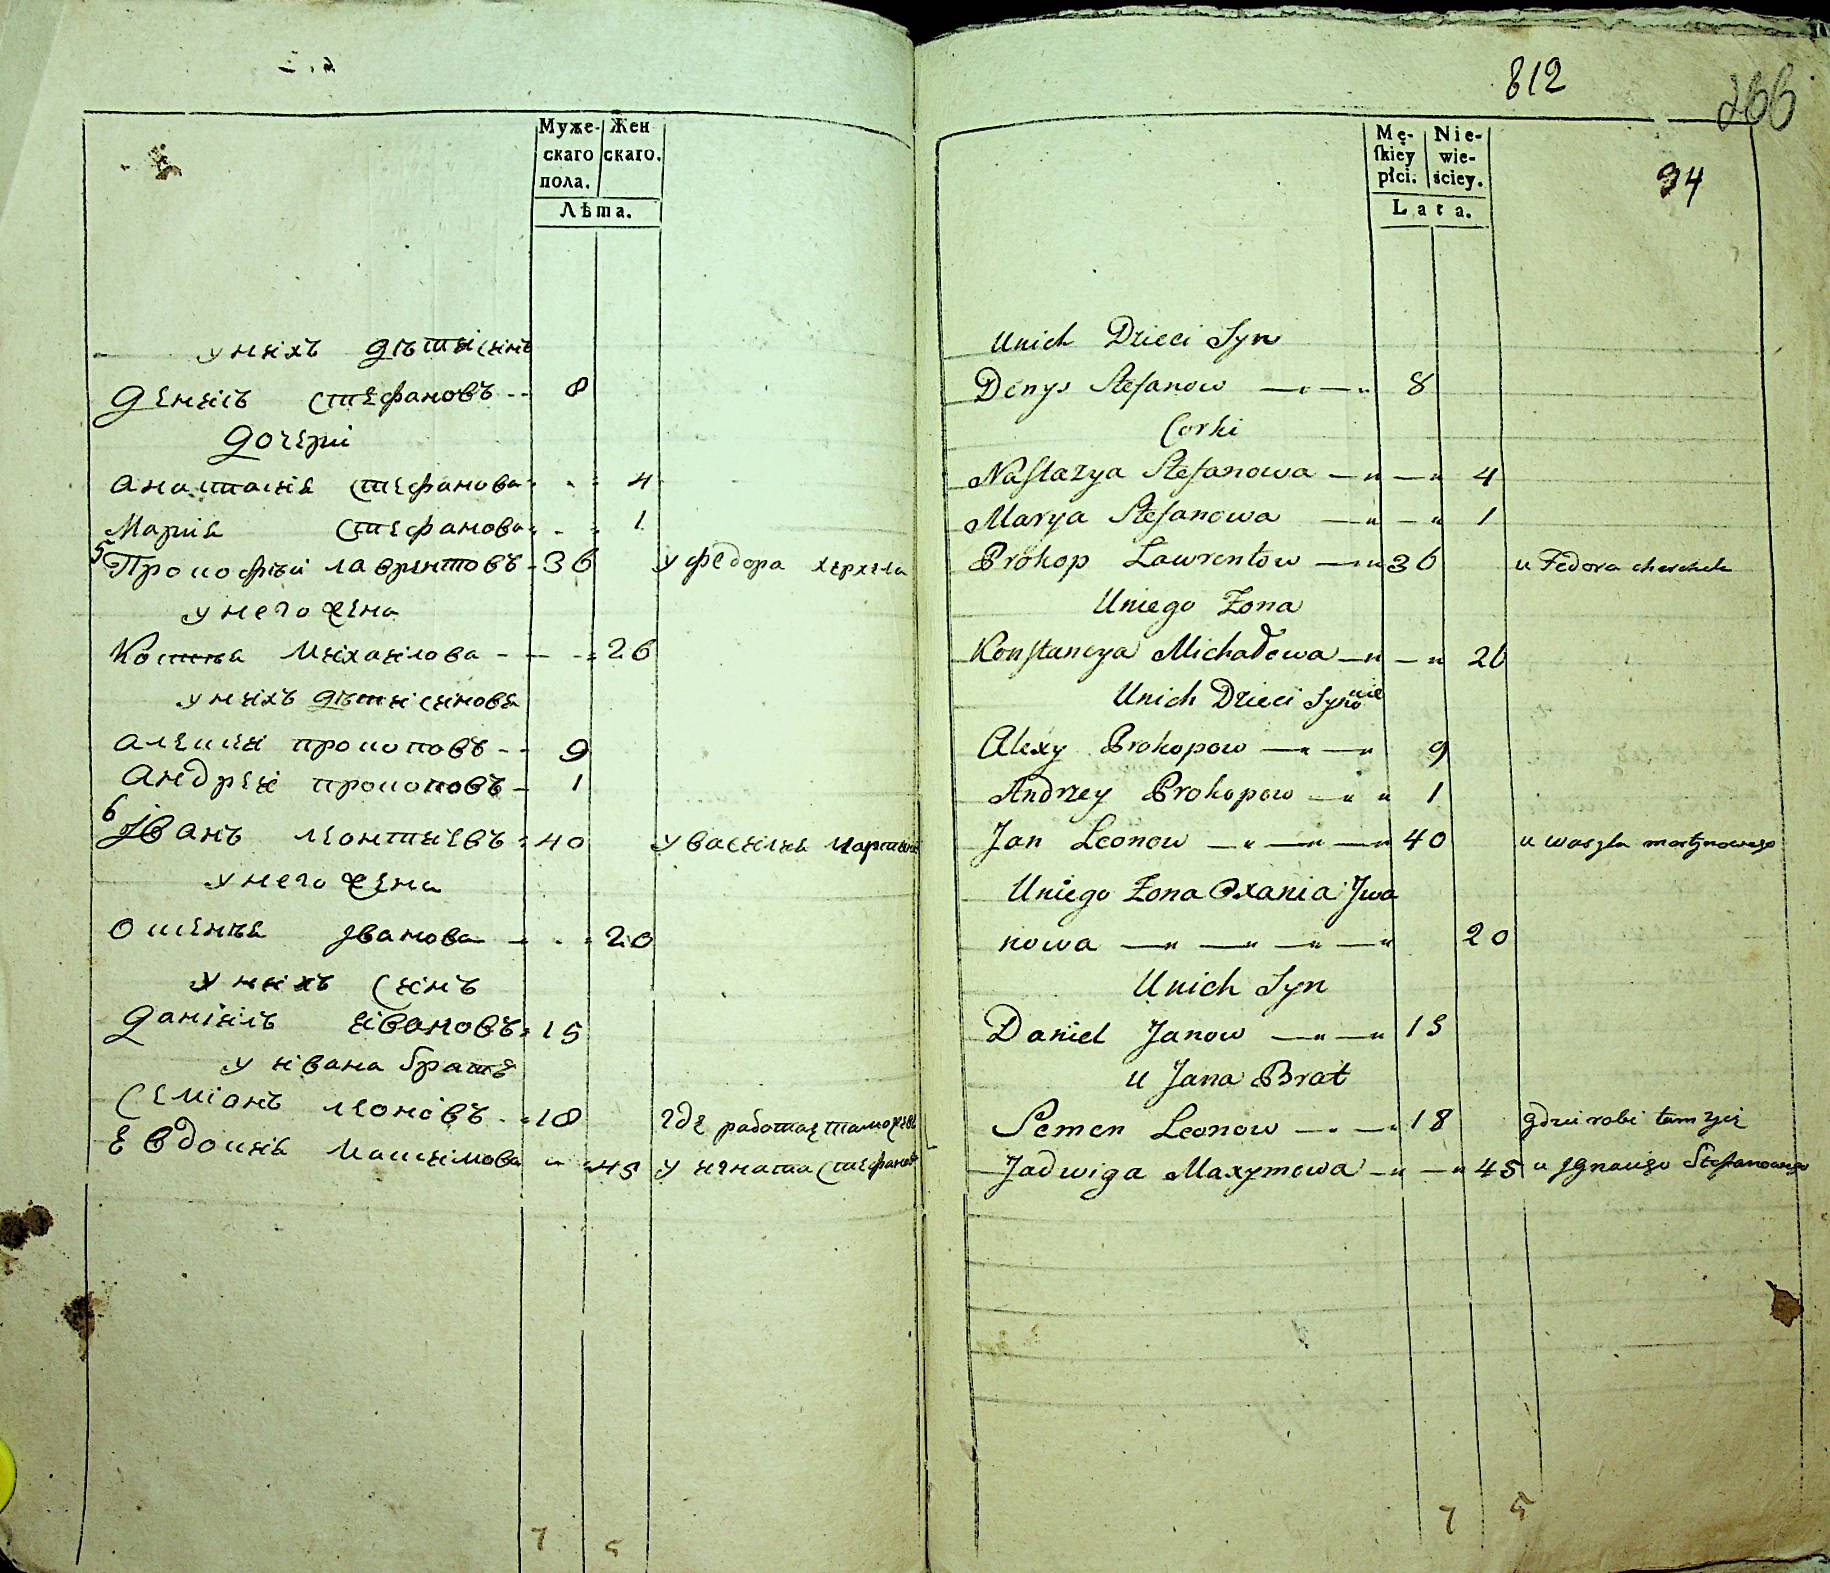 Муже- Жен
скаго скаго.
пола.
Лѣта.
у нихъ дѣти синъ
Денисъ Стефановъ -- 8
Дочери
Анастасия Стефанова - - 4
Мария Стефанова - - 1
5 Прокофѣй Лаврентовъ - 36 у Федора Херхела
у него жена
Костя Михаилова - - - 26
у нихъ дѣти синовя
Алексий Прокоповъ -- 9
Андрей Прокоповъ - 1
6 Иванъ Леонтиевъ - 40 у Василия Марти
у него жена
Оксения Иванова - - - 20
у нихъ синъ
Даниилъ Ивановъ 15
у Ивана братъ
Семіонъ Леоновъ - 18 где работае тамо живе
Евдокия Максимова „ - 45 у Игната Стефанов
7 5
812
266
94
Mę- Nie-
ſkiey wie-
płci. ściey.
Lata.
Unich Dzieci Syn
Denys Stefanow — „ — „ 8
Corki
Naſtazya Stefanowa — „ — „ 4
Marya Stefanowa — „ — „ 1
Prokop Lawrentow — „ 36 u Fedora cherchela
Uniego Zona
Konſtancya Michałowa — „ — „ 26
Unich Dzieci Synowie
Alexy Prokopow — „ — „ 9
Andrzey Prokopow — „ „ 1
Jan Leonow — „ — „ — „ 40 u Wasyla martynowego
Uniego Zona Oxania Jwa
nowa — „ — „ — „ — „ 20
Unich Syn
Daniel Janow — „ — „ 15
u Jana Brat
Semen Leonow — „ — „ 18 gdzie robi tam zyie
Jadwiga Maxymowa — „ — „ 45 u Jgnacego Stefanowego
7 5